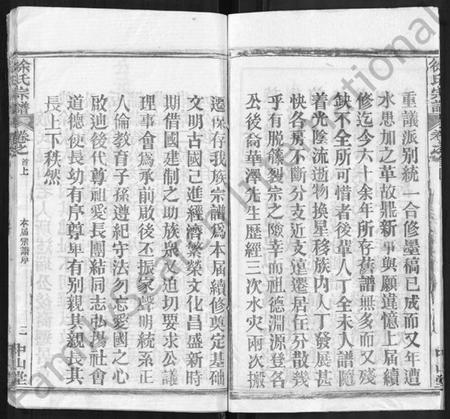 徐氏宗譜
重議派別統一合修墨稿已成而又年遭
水患加之革故鼎新事與願違憶上屆續
修迄今六十余年所存舊譜無多而又殘
缺不全所可惜者後輩人丁全未入譜隨
着光陰流逝物換星移族內人丁發展甚
快各房不斷分支近支遠遷居住分散幾
乎有脫蘿裂宗之險幸而祖德淵源登名
公後裔華澤先生歷經三次水灾兩次搬
遷保存我族宗譜爲本屆續修奠定基础
文明古國己進經濟繁榮文化昌盛新時
期借國建制之助族衆又迫切要求公議
理事會爲承前啟後丕振家聲明統系正
人倫教育子孫遵紀守法勿忘愛國之心
啟迪後代尊祖愛長團結同志弘揚社會
道德使長幼有序尊卑有別親其親長其
長上下秩然
徐氏宗譜
卷之首上
本屆宗譜序
二
中山堂